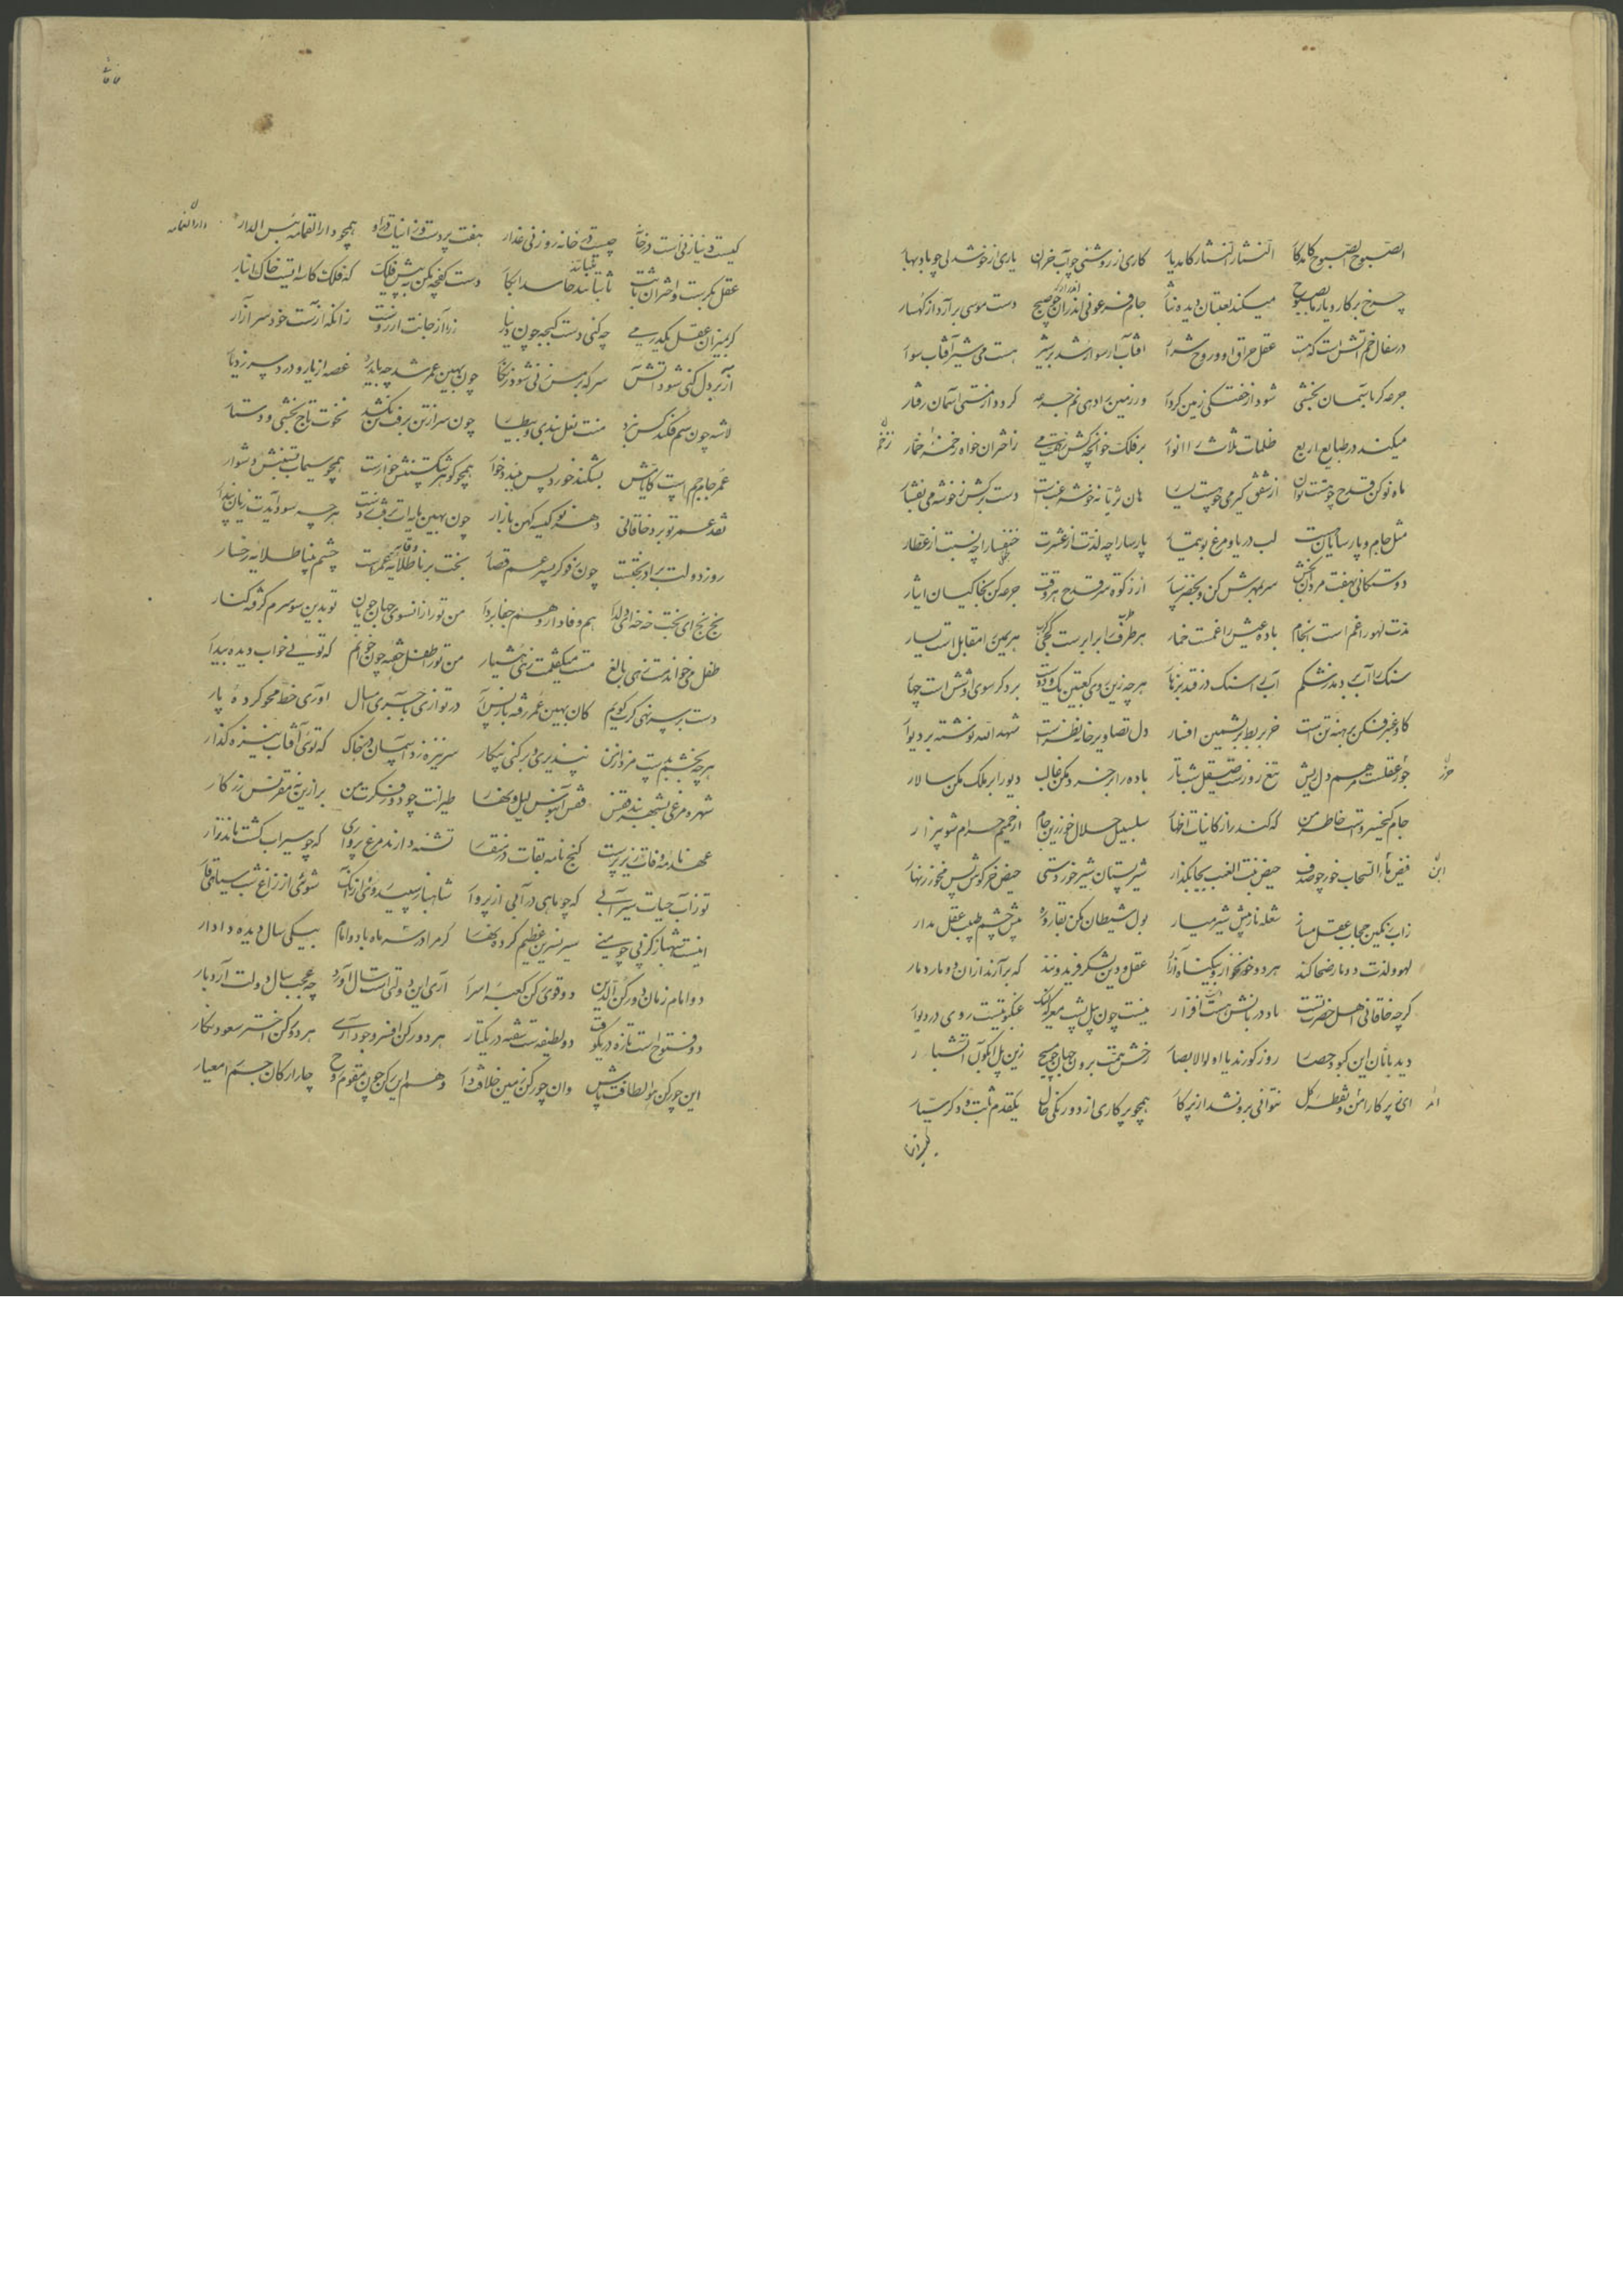 الصبوح الصبوح کامد کار النثار النثار کامد یار کاری از روشنی چو آب خزان یاری از خوشدلی چو باد بهار
چرخ بر کار و یار ما بصبوح میکند لعبتان دیده نثار جام فرعونی اندر آر چو صبح دست موسی برآرد از کهسار
در سفال خم آتش است که هست عقل حراق او و روح شرار آفتاب ار سوار شد بر شیر هست می شیر آفتاب سوار
جرعه گر بآسمان بخشی شود از خفتگی زمین کردار ور زمین را دهی نم جرعه گردد از مستی آسمان رفتار
میکند در طبایع اربع ظلمات ثلاث را انوار بر فلک خوانچه کش زاختران خواه رخمه خمار
ماه نو کن قدح چو هست توان از شفق گیر می چو هست یسار هان ثریا نه خوشه عنب است دست برکش ز خوشه می بفشار
مثل جام و پارسایان هست لب دریا و مرغ بوتیمار پارسا را چه لذت از عشرت خنفسا را چه نسبت از عطار
دوستکانی بهفت مردان بخش سر بمهرش کن و بخضر سپار از زکوة سر قدح هر وقت جرعه کن بخاکیان ایثار
لذت لهو را غم است انجام باده عیش را غمست خمار هر طرف را برابر است هر یمین را مقابل است یسار
سنگ را آب بر دمد ز شکم آب را سنگ در فتد بزهار هرچه زین روی کعبتین یک و دوست بر دگر سوی او شش است چهار
گاو عنبر فکن برهنه تن است خر بربط بریشمین افسار دل تصاویر خانه نظر است شهد الله نوشته بر دیوار
جور عقلست مرهم دل ریش تیغ روزست صیقل شب تار باده را بر خرد مکن غالب دیو را بر ملک مکن سالار
جام کیخسرو است خاطر من که کند راز کاینات اظهار سلسبیل حلال خور زین جام از حمیم حرام شو بیزار
فیض ابن السحاب خور چو صدف حیض بنت العنب بجا بگذار شیر پستان شیر خوردستی حیض خرگوش پس مخور زنهار
ز آب رنگین حجاب عقل مساز شعله نار پیش شیر میار بول شیطان مکن بقاروره پیش چشم طبیب عقل مدار
لهو و لذت دو مار ضحاکند هر دو خونخوار و بیگناه آزار عقل و دین لشکر فریدونند که برآرند از آن دو مار دمار
گرچه خاقانی اهل حضرت نیست یاد دربانش هست افزار نیست چون پیل پشت معرکه لیک عنکبوتیست روی در دیوار
دیدبانان این کبود حصار روز کورند یا اولو الابصار رخش همت برون جهان چو مسیح زین پل آبگون آتشبار
ای پرگار امر و نقطه کل نتوانی برون شد از پرگار همچو پرگاری از دو رنگی حال یکقدم ثابت و دگر سیار
کیست دنیا زنی است در خانه چیست خانه روزنی غدار هفت پرده است و زانیات در او همچو دار القمامه بئس الدار
عقل بکر است و اختران ثیب ثیباتند حاسد ابکار دست کفچه مکن به پیش فلک که فلک کاسه ایست خاک انبار
گر بمیزان عقل یکدرمی چه کنی دست کفچه چون دینار زر از آن جانت آرزوست زانکه از تست خود سر آزار
آز بر دل کنی شود آتش سرکه بر مس زنی شود زنگار چون بهین عمر شد چه باید برد غصه از یار و درد سر ز دیار
لاشه چون سم فکند کس نبرد منت نعلبندی و بیطار چون سر از تن برفت کس نکشد نخوت تاج بخشی و دستار
عمر جام جم است کایامش بشکند خرد پس ببندد خوار همچو گوهر شکستنش خوار است همچو سیماب بستنش دشوار
نقد عمر تو برد خاقانی دهر نو کیسه کهن بازار چون بهین مایه ات برفت ز دست هرچه سود آیدت زیان پندار
روز دولت برادر بخت است چون بره و گر پسر عم قصار بخت برنات طلایه عمر است چشم بینا طلایه رخسار
بخ بخ ای بخت خه خه ای دلدار هم وفادار و هم جفا بردار من تو را زانسوی جهان جویان تو بدین سو سرم گرفته کنار
طفل می خواندمت زهی بالغ مست میگفتمت زهی هشیار من تو را طفل خفته چون خوانم که تویی خواب دیده بیدار
دست بر سر نهی گرت گویم کان بهین عمر رفته باز پس آر در تو آزی بآخری سال آوری خط محو کرده پار
هرچه بخشم بدست مزد از من نپذیری و رد کنی پیکار سر نیزه زد آسمان در خاک که تویی آفتاب نیزه گذار
شهره مرغی بشهر بند قفس قفس آبنوس لیل و نهار طیرانت چو دور فکرت من بر از این نه مقرنس زرکار
عهدنامه وفات زیر پر است گنج نامه بقات در منقار تشنه دارند مرغ پروازی که چو سیراب گشت ماند زار
تو ز آب حیات سیرآبی که چو ماهی در آبی از پرواز شاهباز سپید روزی از آنک شوئی از زاغ شب سیاهی قار
اینت شهباز کز پی چو منی سیر نسرین عظیم کرده نثار گر مرا در سه ماه با دو امام بیکی سال دیده دادار
دو امام زمان دو رکن الدین دو قوی رکن کعبه اسرار آری این دولتی است سال آورد چه عجب سال دولت آرد بار
دو فتوح است تازه در یک وقت دو لطیفه ست شقه در یکبار هر دو رکن افسر وجود آرای هر دو رکن اختر سعود نگار
این چو رکن هوا لطافت پاش وان چو رکن زمین خلافت دار وهم این رکن چون مقوم روح چار ارکان جسم را معیار